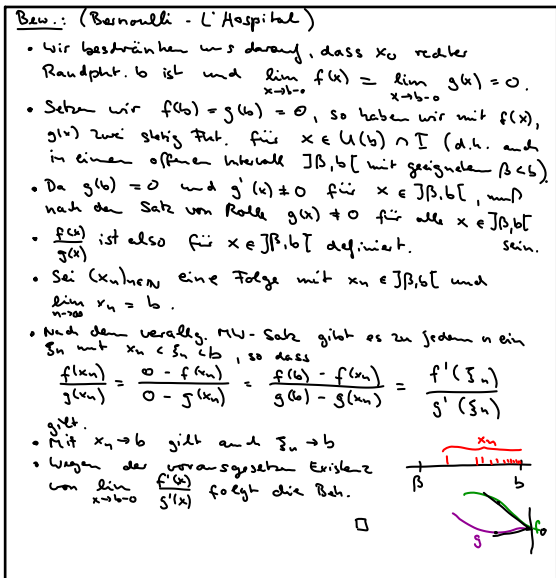 Bew.: (Bernoulli - L'Hospital)
• Wir beschränken uns darauf, dass x₀ rechter
Randpkt. b ist und lim_{x→b-0} f(x) = lim_{x→b-0} g(x) = 0.
• Setzen wir f(b) = g(b) = 0, so haben wir mit f(x),
g(x) zwei stetig Fkt. für x ∈ U(b) ∩ I (d.h. auch
in einem offenen Intervall ]β,b[ mit geeignetem β<b).
• Da g(b) = 0 und g'(x) ≠ 0 für x ∈ ]β,b[, muß
nach dem Satz von Rolle g(x) ≠ 0 für alle x ∈ ]β,b[
sein.
• f(x)/g(x) ist also für x ∈ ]β,b[ definiert.
• Sei (xₙ)ₙ∈ℕ eine Folge mit xₙ ∈ ]β,b[ und
lim_{n→∞} xₙ = b.
• Nach dem verallg. MW-Satz gibt es zu jedem n ein
ξₙ mit xₙ < ξₙ < b, so dass
f(xₙ)/g(xₙ) = (0 - f(xₙ))/(0 - g(xₙ)) = (f(b) - f(xₙ))/(g(b) - g(xₙ)) = f'(ξₙ)/g'(ξₙ)
gilt.
• Mit xₙ → b gilt auch ξₙ → b
• Wegen der vorausgesetzen Existenz
von lim_{x→b-0} f'(x)/g'(x) folgt die Beh.
□
xₙ
β b
f
0
g